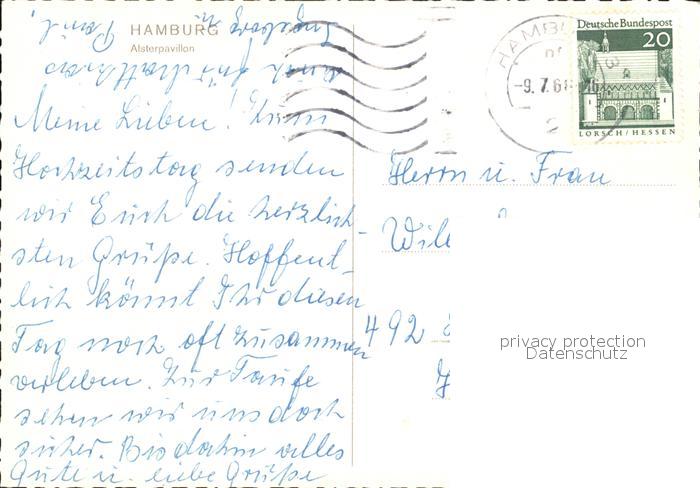 HAMBURG
Alsterpavillon
Meine Lieben! Zum
Hochzeitstag senden
wir Euch die herzlich-
sten Grüße. Hoffent-
lich könnt Ihr diesen
Tag noch oft zusammen
verleben. Zur Taufe
sehen wir uns doch
sicher. Bis dahin alles
Gute u. liebe Grüße
Ingeborg u.
Paul
HAMBU
-9. 7. 6
2
Deutsche Bundespost
20
LORSCH / HESSEN
Herrn u. Frau
492
privacy protection
Datenschutz